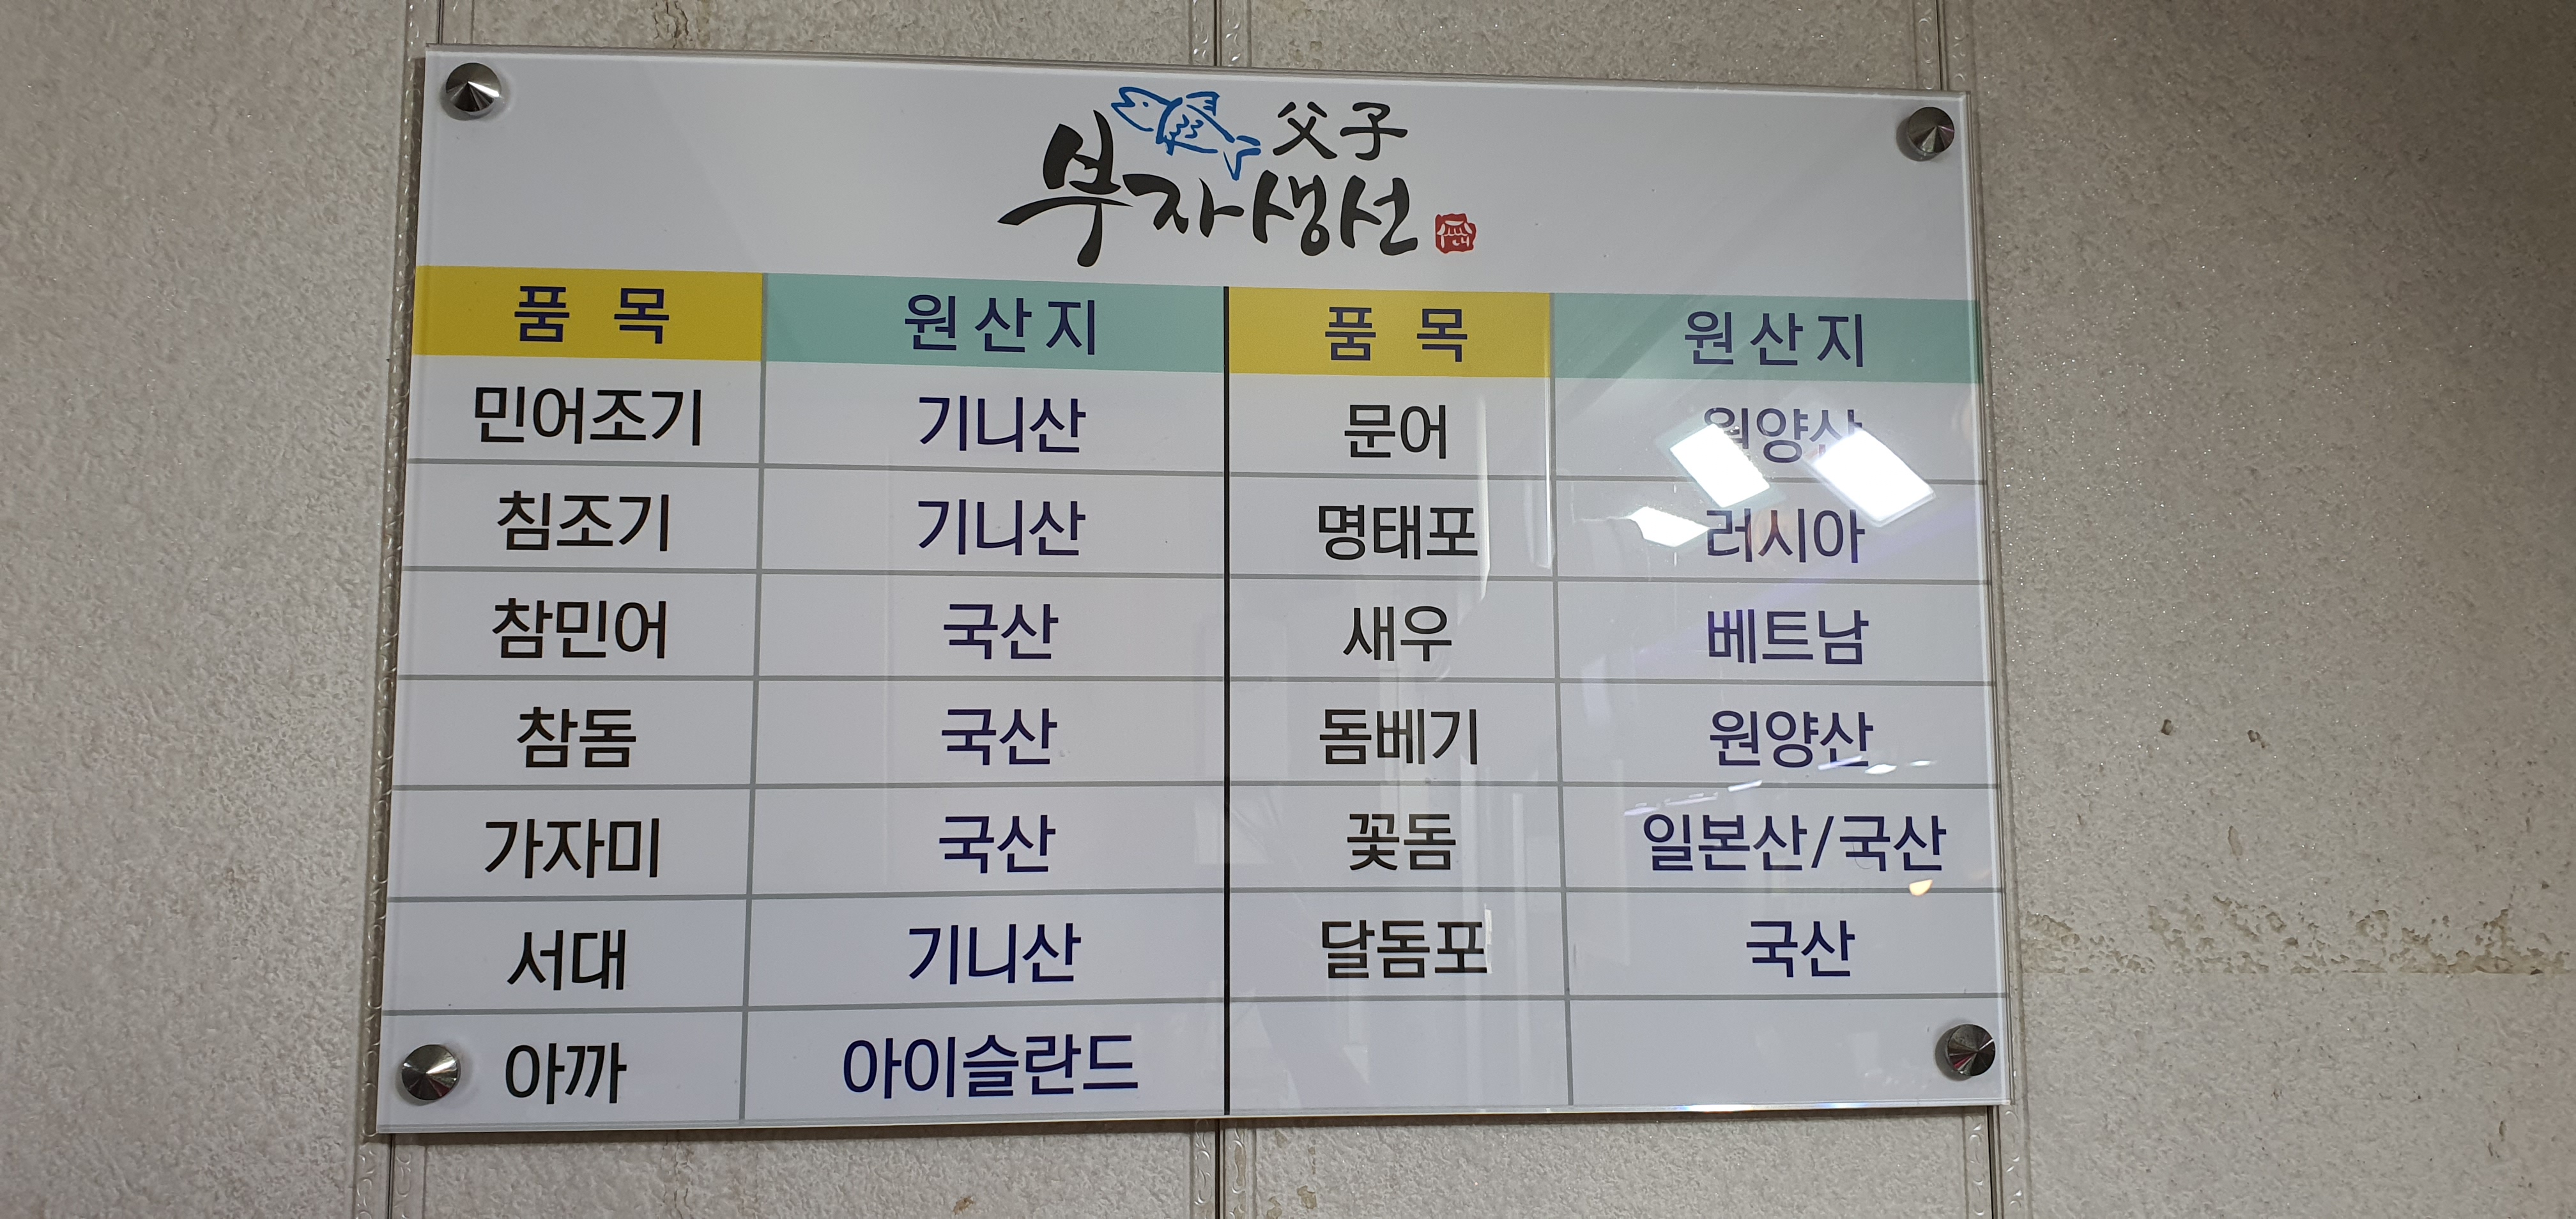 父子
부자생선
품 목 원산지 품 목 원산지
민어조기 기니산 문어 원양산
침조기 기니산 명태포 러시아
참민어 국산 새우 베트남
참돔 국산 돔베기 원양산
가자미 국산 꽃돔 일본산/국산
서대 기니산 달돔포 국산
아까 아이슬란드